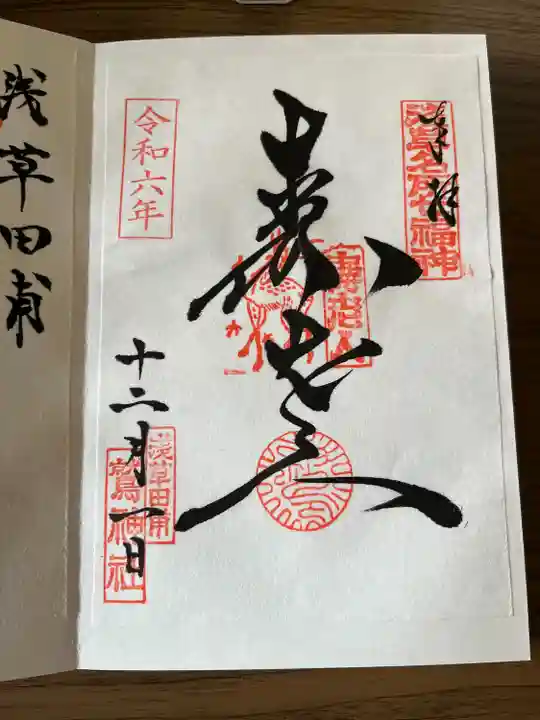 奉拝
浅草名所七福神
寿老人
寿老人
令和六年
十二月一日
浅草田甫
鷲神社
浅草田甫